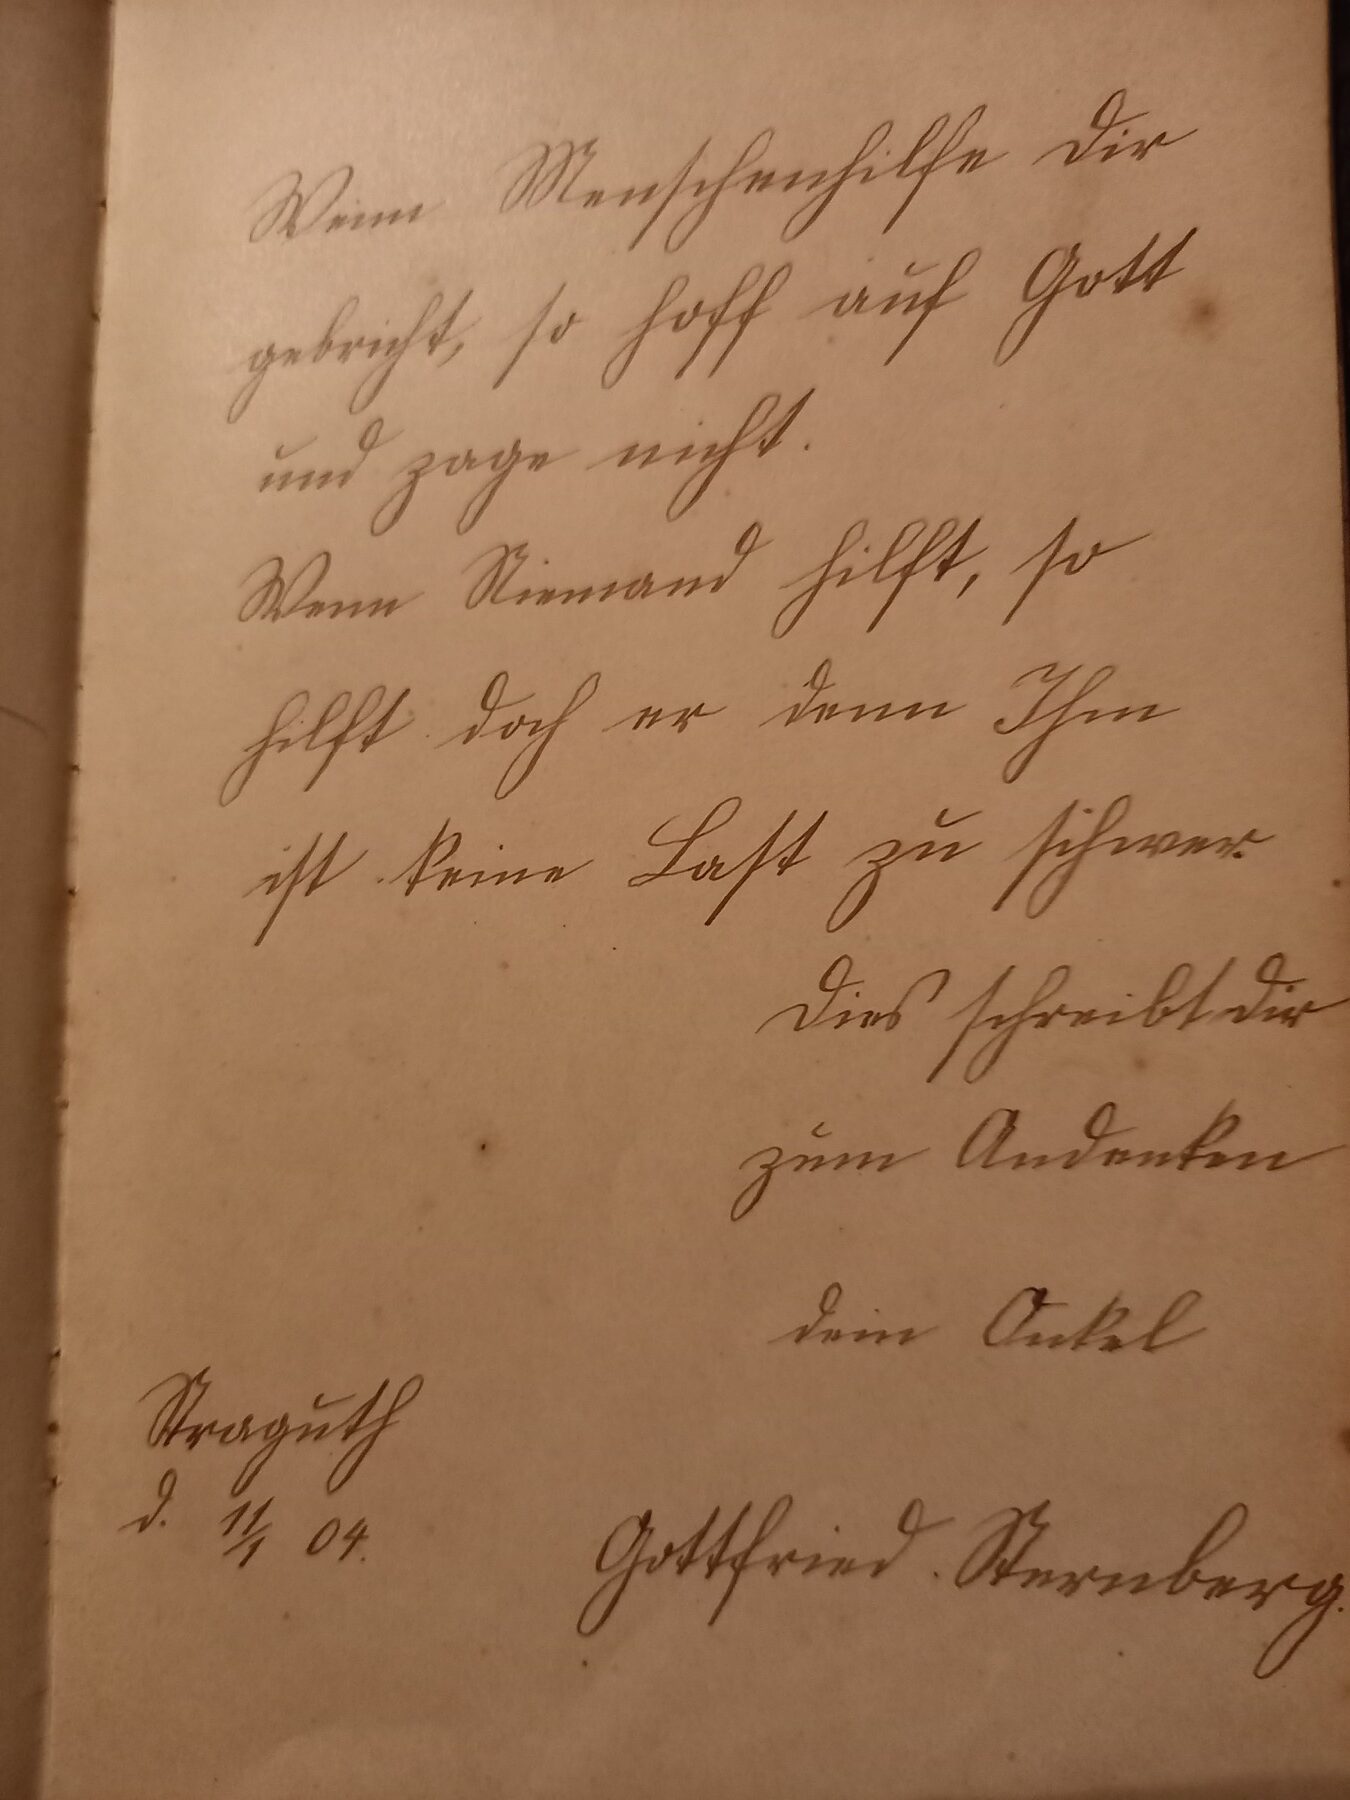 Wenn Menschenhilfe dir
gebricht, so hoff auf Gott
und zage nicht.
Wenn Niemand hilft, so
hilft doch er denn Ihm
ist keine Last zu schwer.
Dies schreibt dir
zum Andenken
dein Onkel
Straguth
d. 11/1 04.
Gottfried Sternberg.